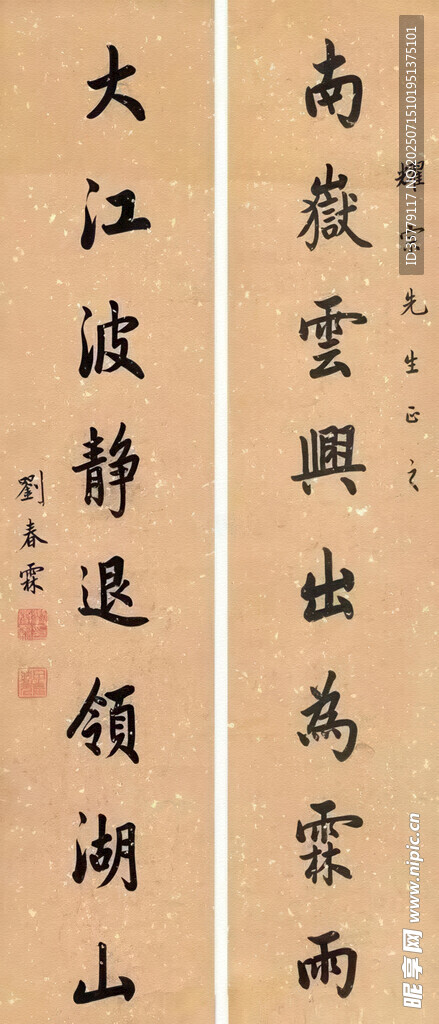 耀宗先生正之
南嶽雲興出為霖雨
大江波静退領湖山
劉春霖
ID:35779117 NO:20250715101951375101
昵享网 www.nipic.cn